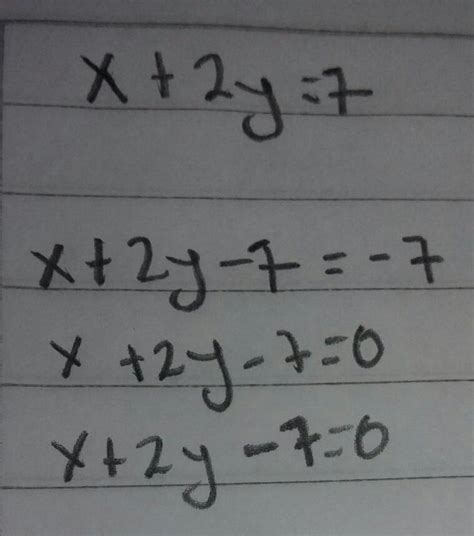 x + 2y = 7
x + 2y - 7 = - 7
x + 2y - 7 = 0
x + 2y - 7 = 0